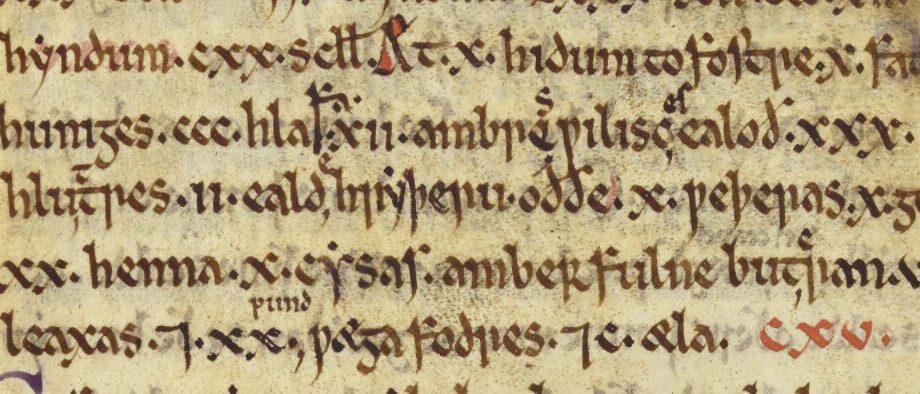 hyndum. cxx. scll. Æt. x. hidum to fostre. x. fat
huniges. ccc. hlafa. xii. ambres ƿilisces ealoð. xxx.
hluttres. ii. ealde hryþeru. oððe. x. ƿeþeras. x. g
xx. henna. x. cysas. amber fulne buteran. v
leaxas. ⁊. xx. pund ƿæga fodres. ⁊ c. æla. cxv.